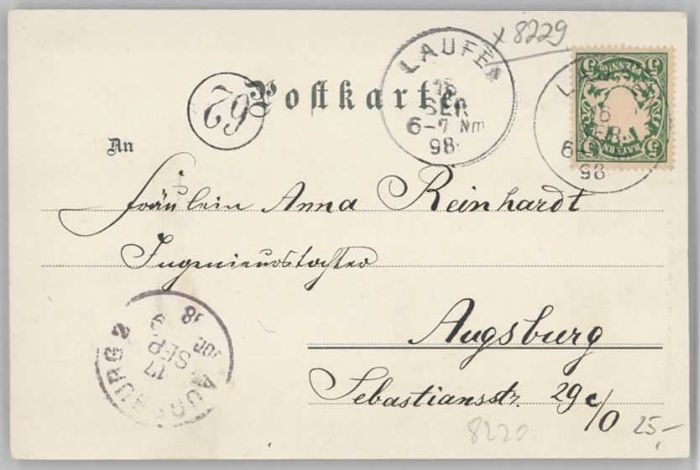 x 8229
Postkarte
62
LAUFEN
16
SEP
6-7 Nm
98
An
Fräulein Anna Reinhardt
Ingenieurstochter
Augsburg
Sebastiansstr. 29 c/0
AUGSBURG 2
17
SEP
8220
25,-